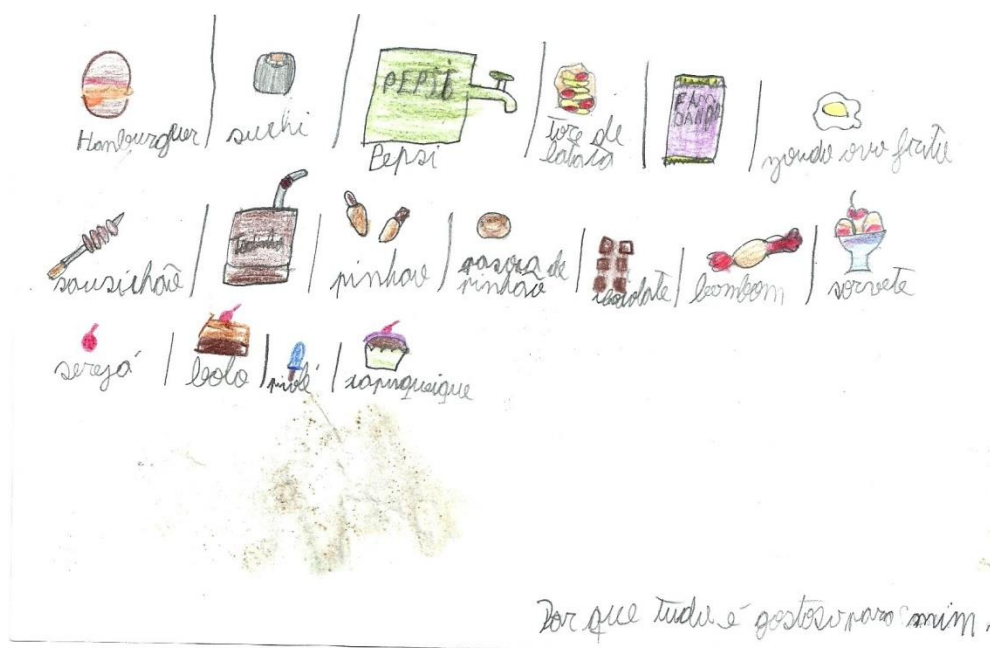 Hamburguer
suchi
PEPSI
Pepsi
tore de
batata
yondo ovo fritu
sausichõe
Todinho
pinhão
pasoca de
pinhão
chocolate
bombom
sorvete
sereja
bolo
picolé
capiqueique
Por que tudo é gostoso para mim.